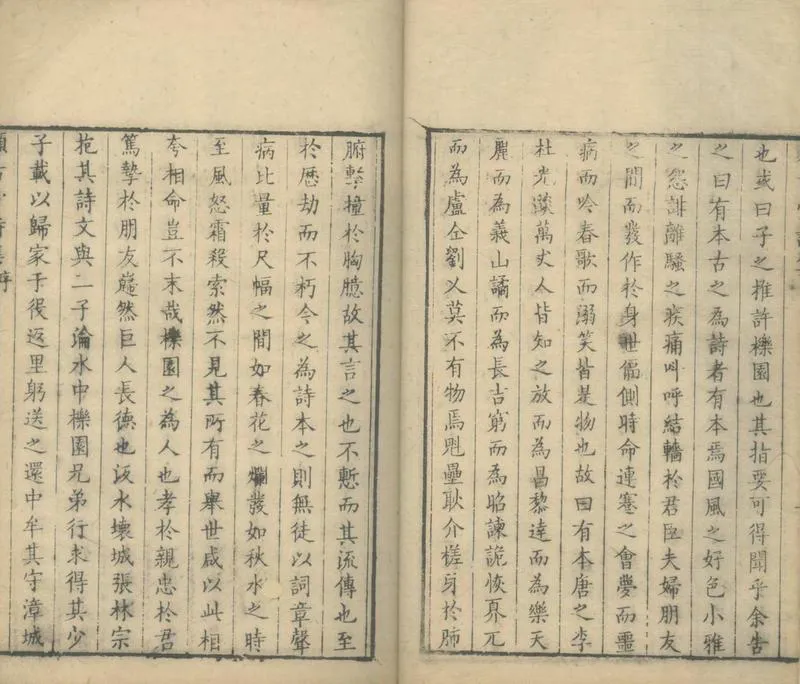 也或曰子之推許櫟園也其指要可得聞乎余告
之曰有本古之為詩者有本焉國風之好色小雅
之怨誹離騷之疾痛叫呼結轖於君臣夫婦朋友
之間而發作於身世偪側時命連蹇之會夢而噩
病而吟舂歌而溺笑皆是物也故曰有本唐之李
杜光燄萬丈人皆知之放而為昌黎達而為樂天
麗而為義山譎而為長吉窮而為昭諫詭恢奡兀
而為盧仝劉叉莫不有物焉魁壘耿介槎牙於肺
腑擊撞於胸臆故其言之也不慙而其流傳也至
於歷劫而不朽今之為詩本之則無徒以詞章聲
病比量於尺幅之間如春花之爛發如秋水之時
至風怒霜殺索然不見其所有而舉世咸以此相
夸相命豈不末哉櫟園之為人也孝於親忠於君
篤摯於朋友嶷然巨人長德也汳水壞城張林宗
抱其詩文與二子淪水中櫟園兄弟行求得其少
子載以歸家于後返里躬送之還中牟其守漳城